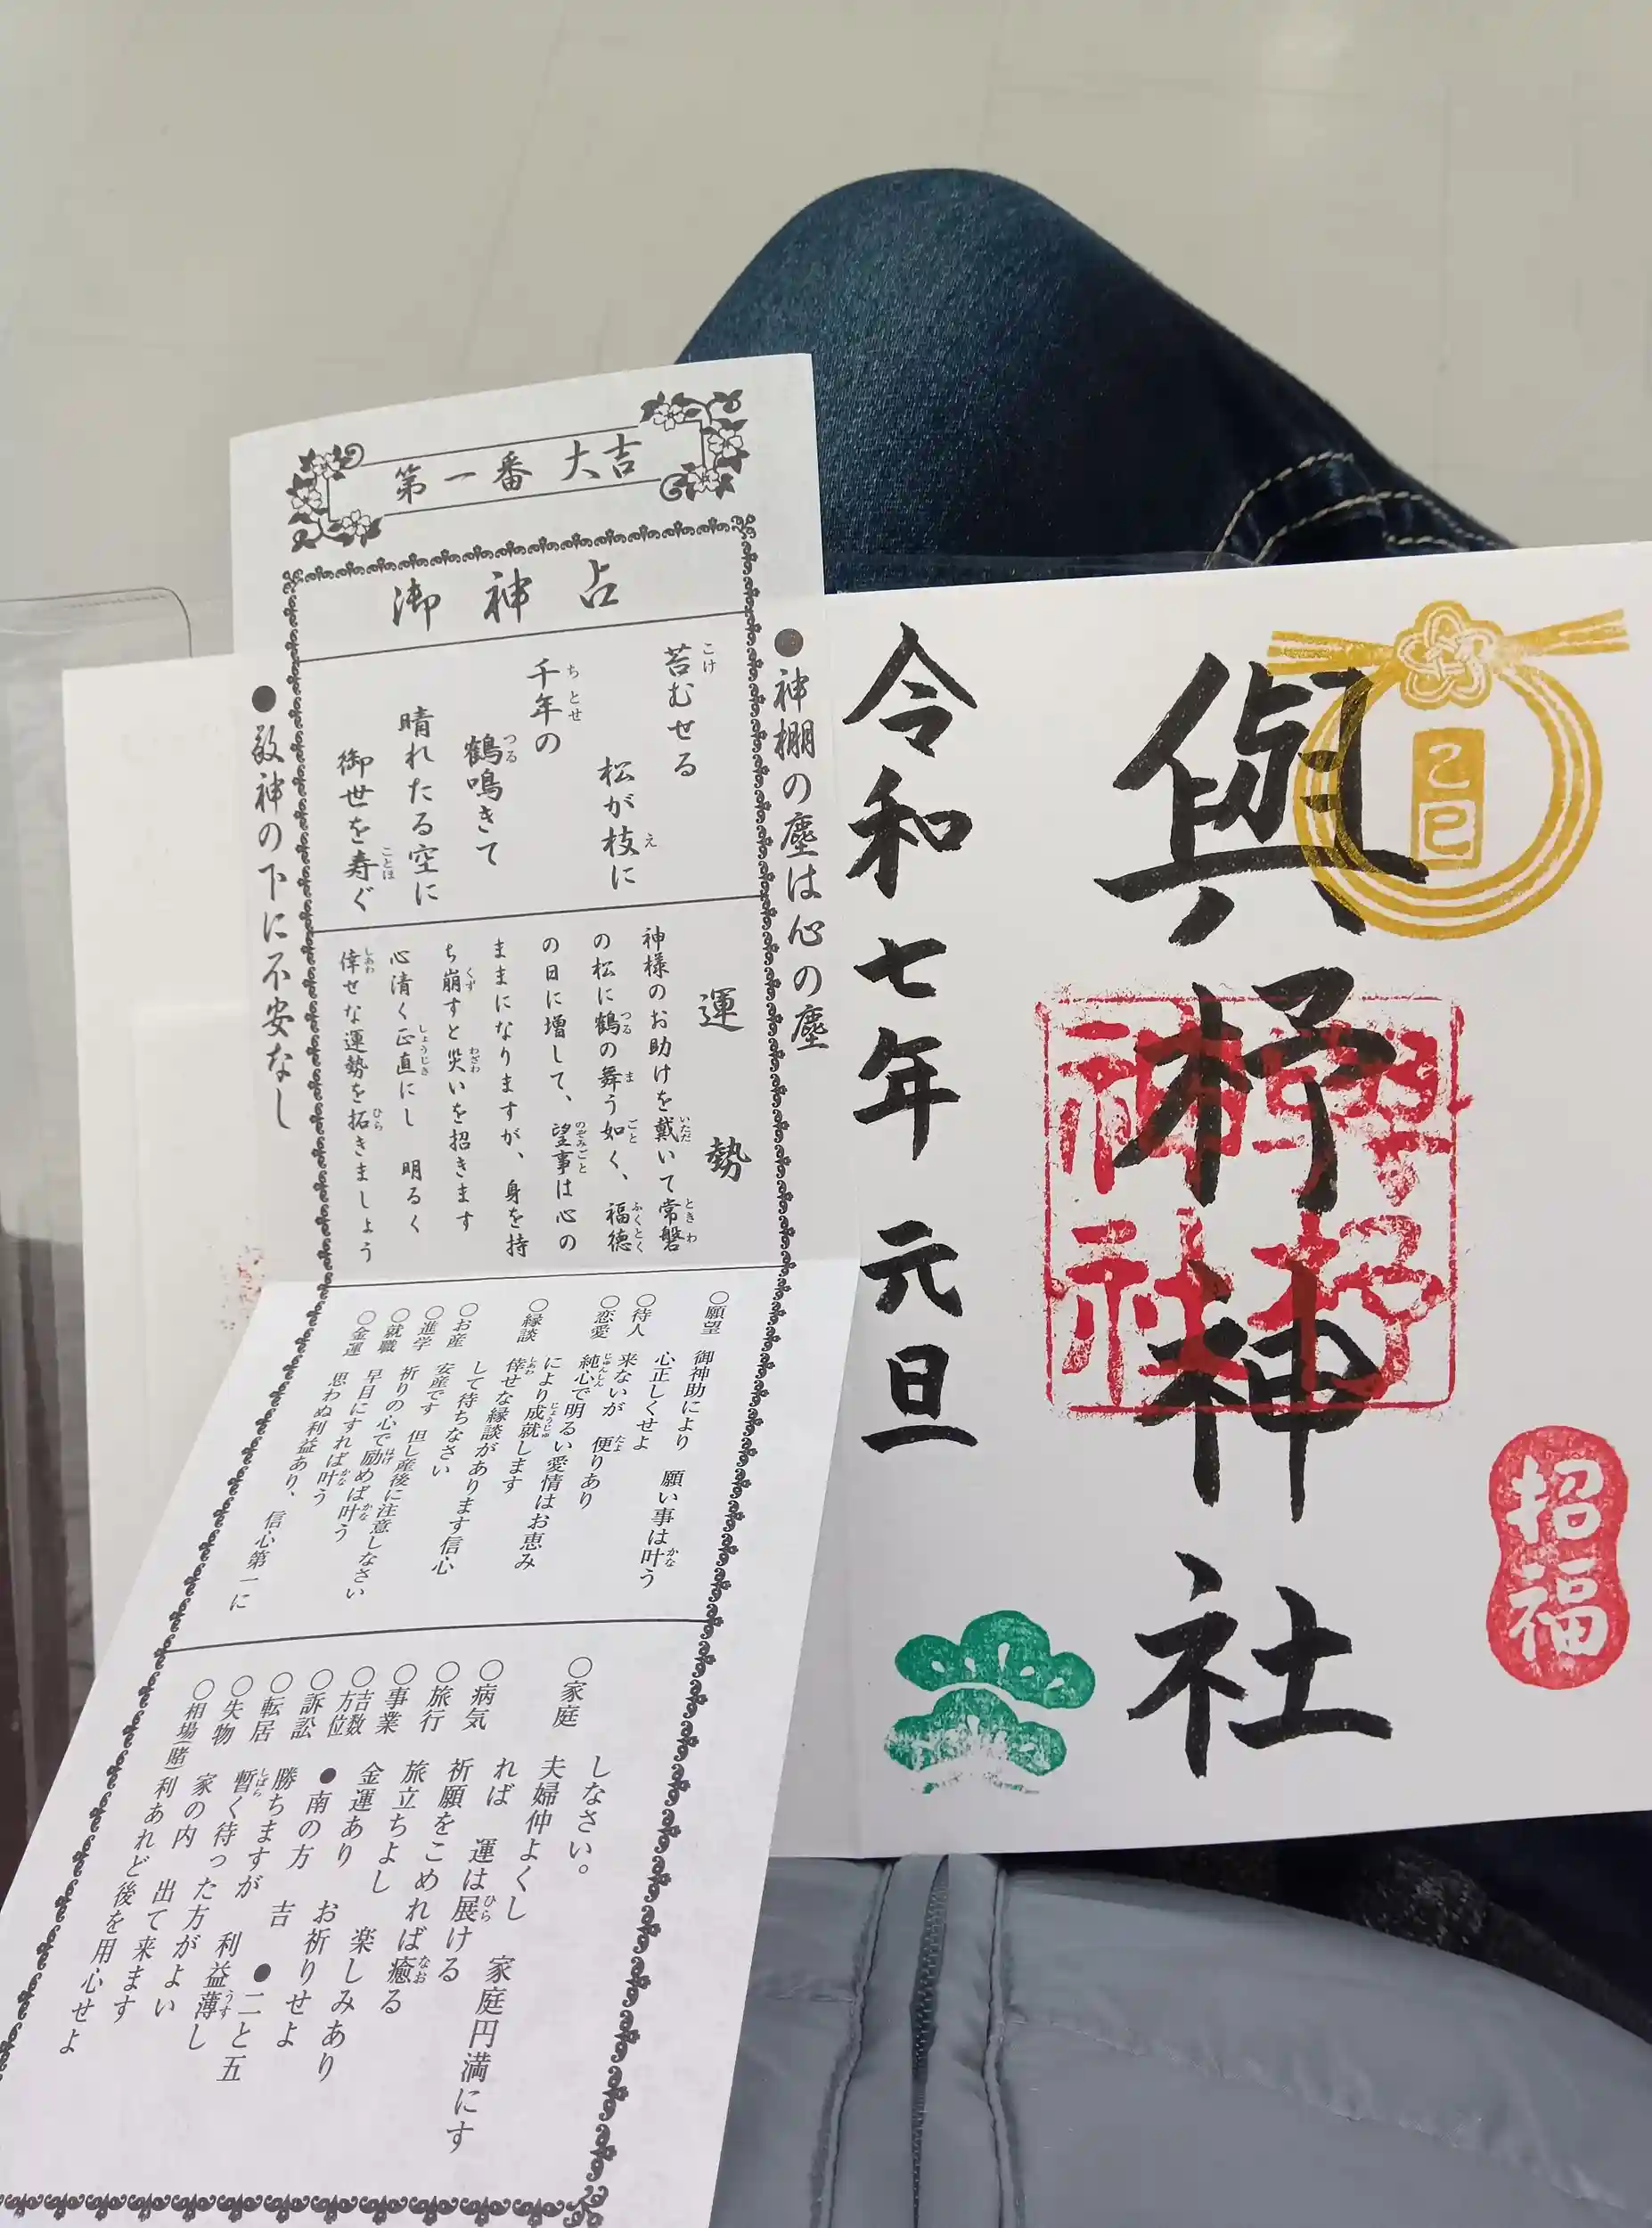 第一番 大吉
御神占
●神棚の塵は心の塵
苔むせる
松が枝に
千年の
鶴鳴きて
晴れたる空に
御世を寿ぐ
●敬神の下に不安なし
運勢
神様のお助けを戴いて常磐
の松に鶴の舞う如く、福徳
の日に増して、望事は心の
ままになりますが、身を持
ち崩すと災いを招きます
心清く正直にし 明るく
倖せな運勢を拓きましょう
○願望 御神助により 願い事は叶う
心正しくせよ
○待人 来ないが 便りあり
○恋愛 純心で明るい愛情はお恵み
により成就します
○縁談 倖せな縁談があります信心
して待ちなさい
○お産 安産です 但し産後に注意しなさい
○進学 祈りの心で励めば叶う
○就職 早目にすれば叶う
○金運 思わぬ利益あり、 信心第一に
しなさい。
○家庭 夫婦仲よくし 家庭円満にす
れば 運は展ける
○病気 祈願をこめれば癒る
○旅行 旅立ちよし 楽しみあり
○事業 金運あり お祈りせよ
○吉数方位 ●南の方 吉 ●二と五
○訴訟 勝ちますが 利益薄し
○転居 暫く待った方がよい
○失物 家の内 出て来ます
○相場(賭) 利あれど後を用心せよ
己巳
與杼神社
與杼神社
招福
令和七年 元旦